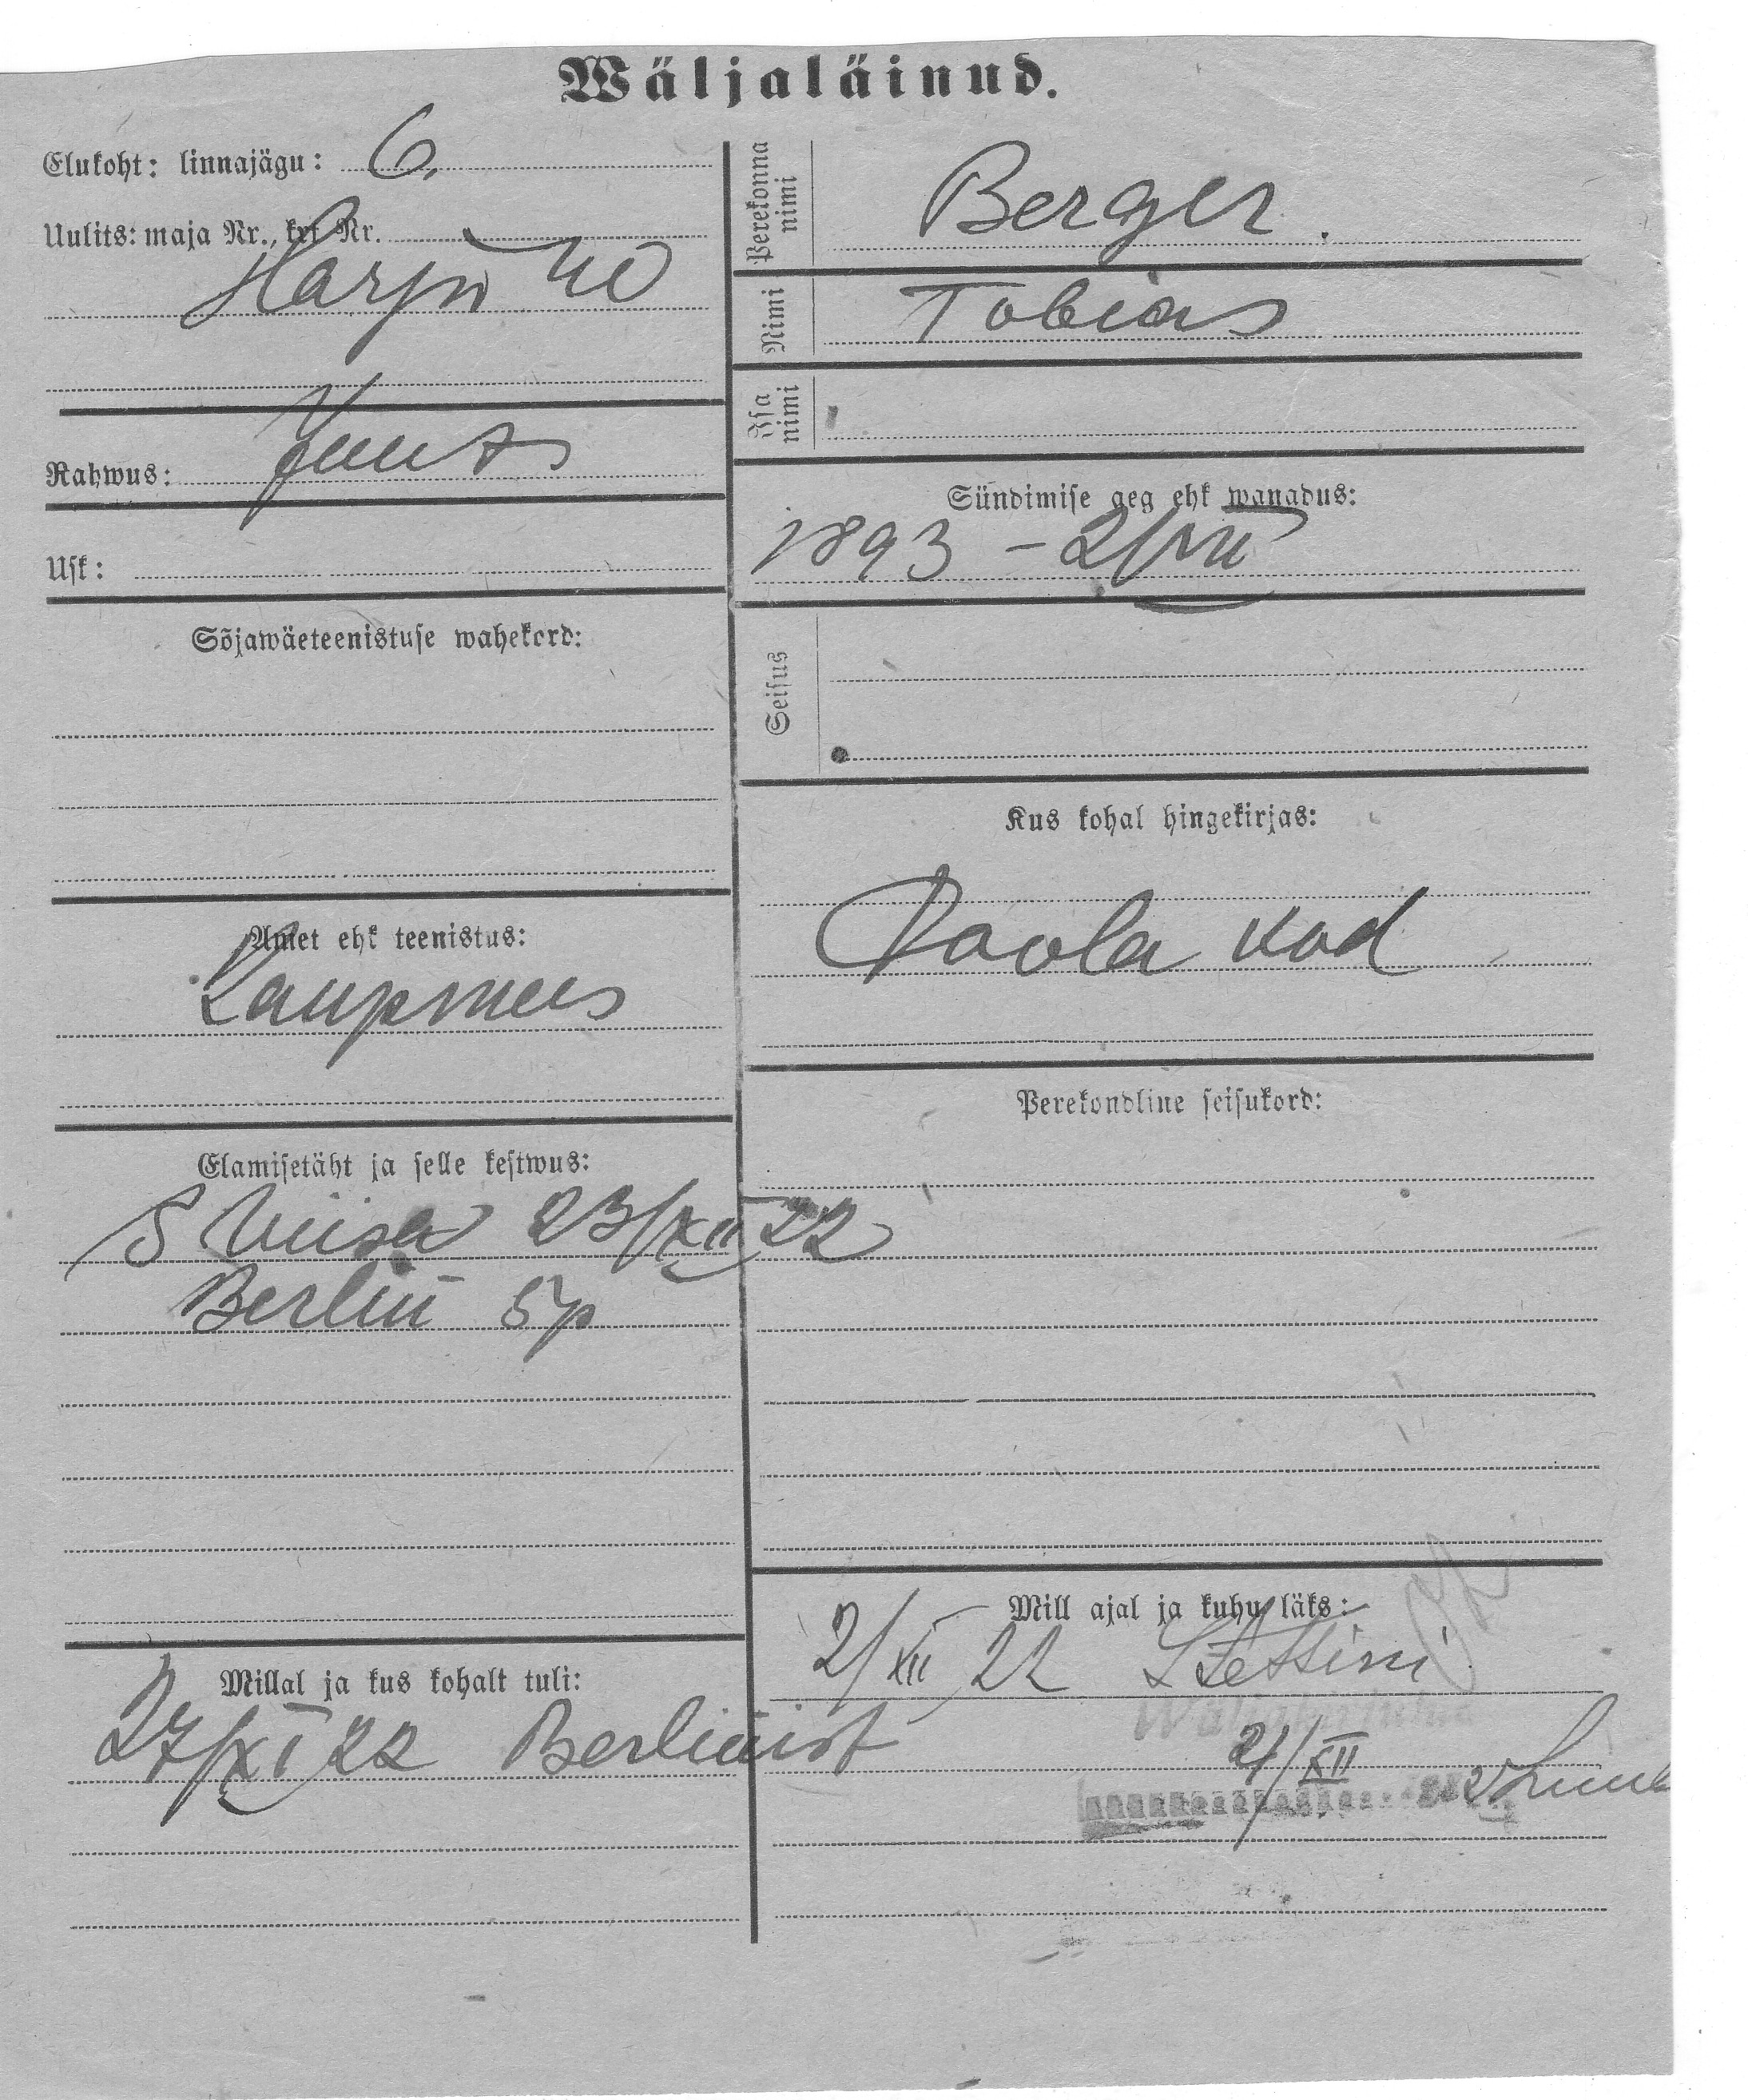 Wäljaläinud.
Elukoht: linnajägu: 6.
Uulits: maja Nr., krt Nr.
Harju 40
Rahwus: Juut
Usk:
Sõjawäeteenistuse wahekord:
Amet ehk teenistus:
Kaupmees
Elamisetäht ja selle kestwus:
S Viisa 23/XII 22
Berlin 5 p
Millal ja kus kohalt tuli:
27/XI 22 Berliinist
Perekonna nimi Berger.
Nimi Tobias
Isa nimi
Sündimise aeg ehk wanadus:
1893 - 2/VII
Seisus
Kus kohal hingekirjas:
Poola kod
Perekondline seisukord:
Mill ajal ja kuhu läks:
2/XII 22 Stettini
21/XII